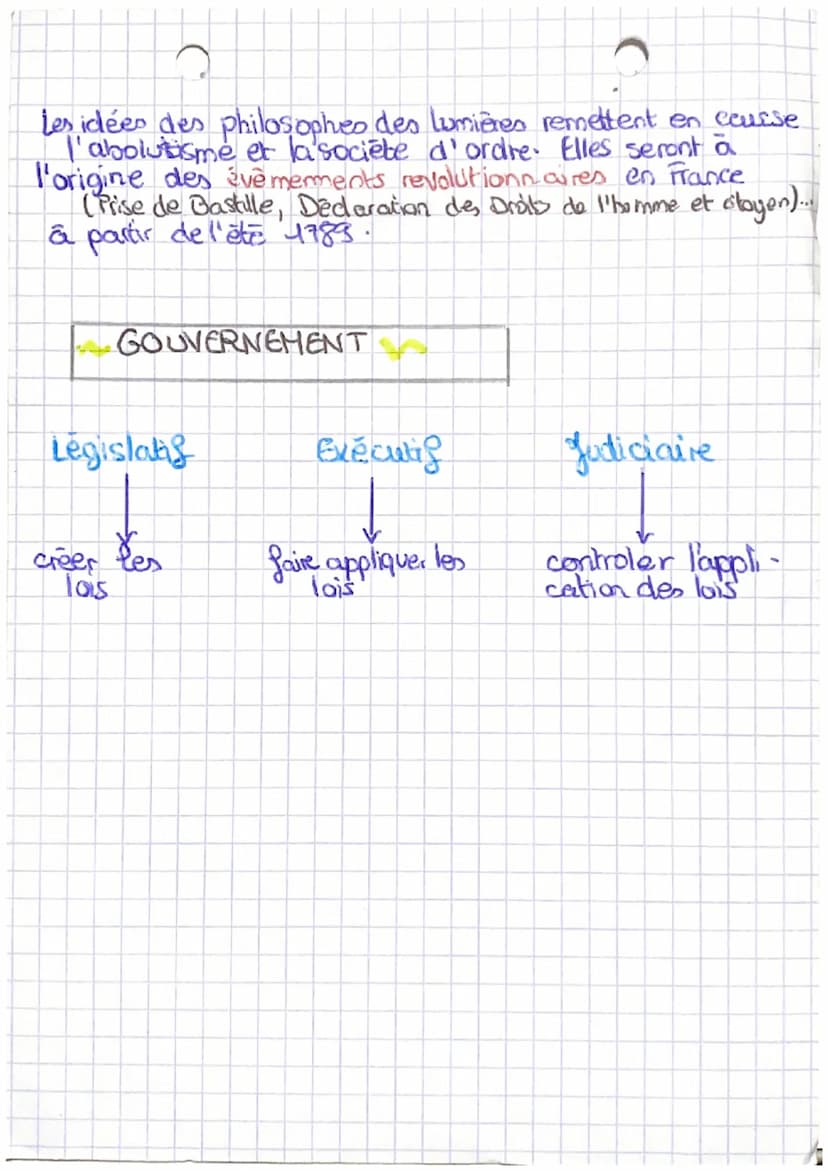 Les idées des philosophes des lumières remettent en ceusse
l'abolutisme et la société d'ordre. Elles seront à
l'origine des évèmerments revolutionnaires en France
(Prise de Bastille, Déclaration des Droits de l'homme et citoyen)...
à partir de l'été 1789.
GOUVERNEMENT
Législatif Exécutif Judiciaire
créer les faire appliquer les controler l'appli-
lois lois cation des lois